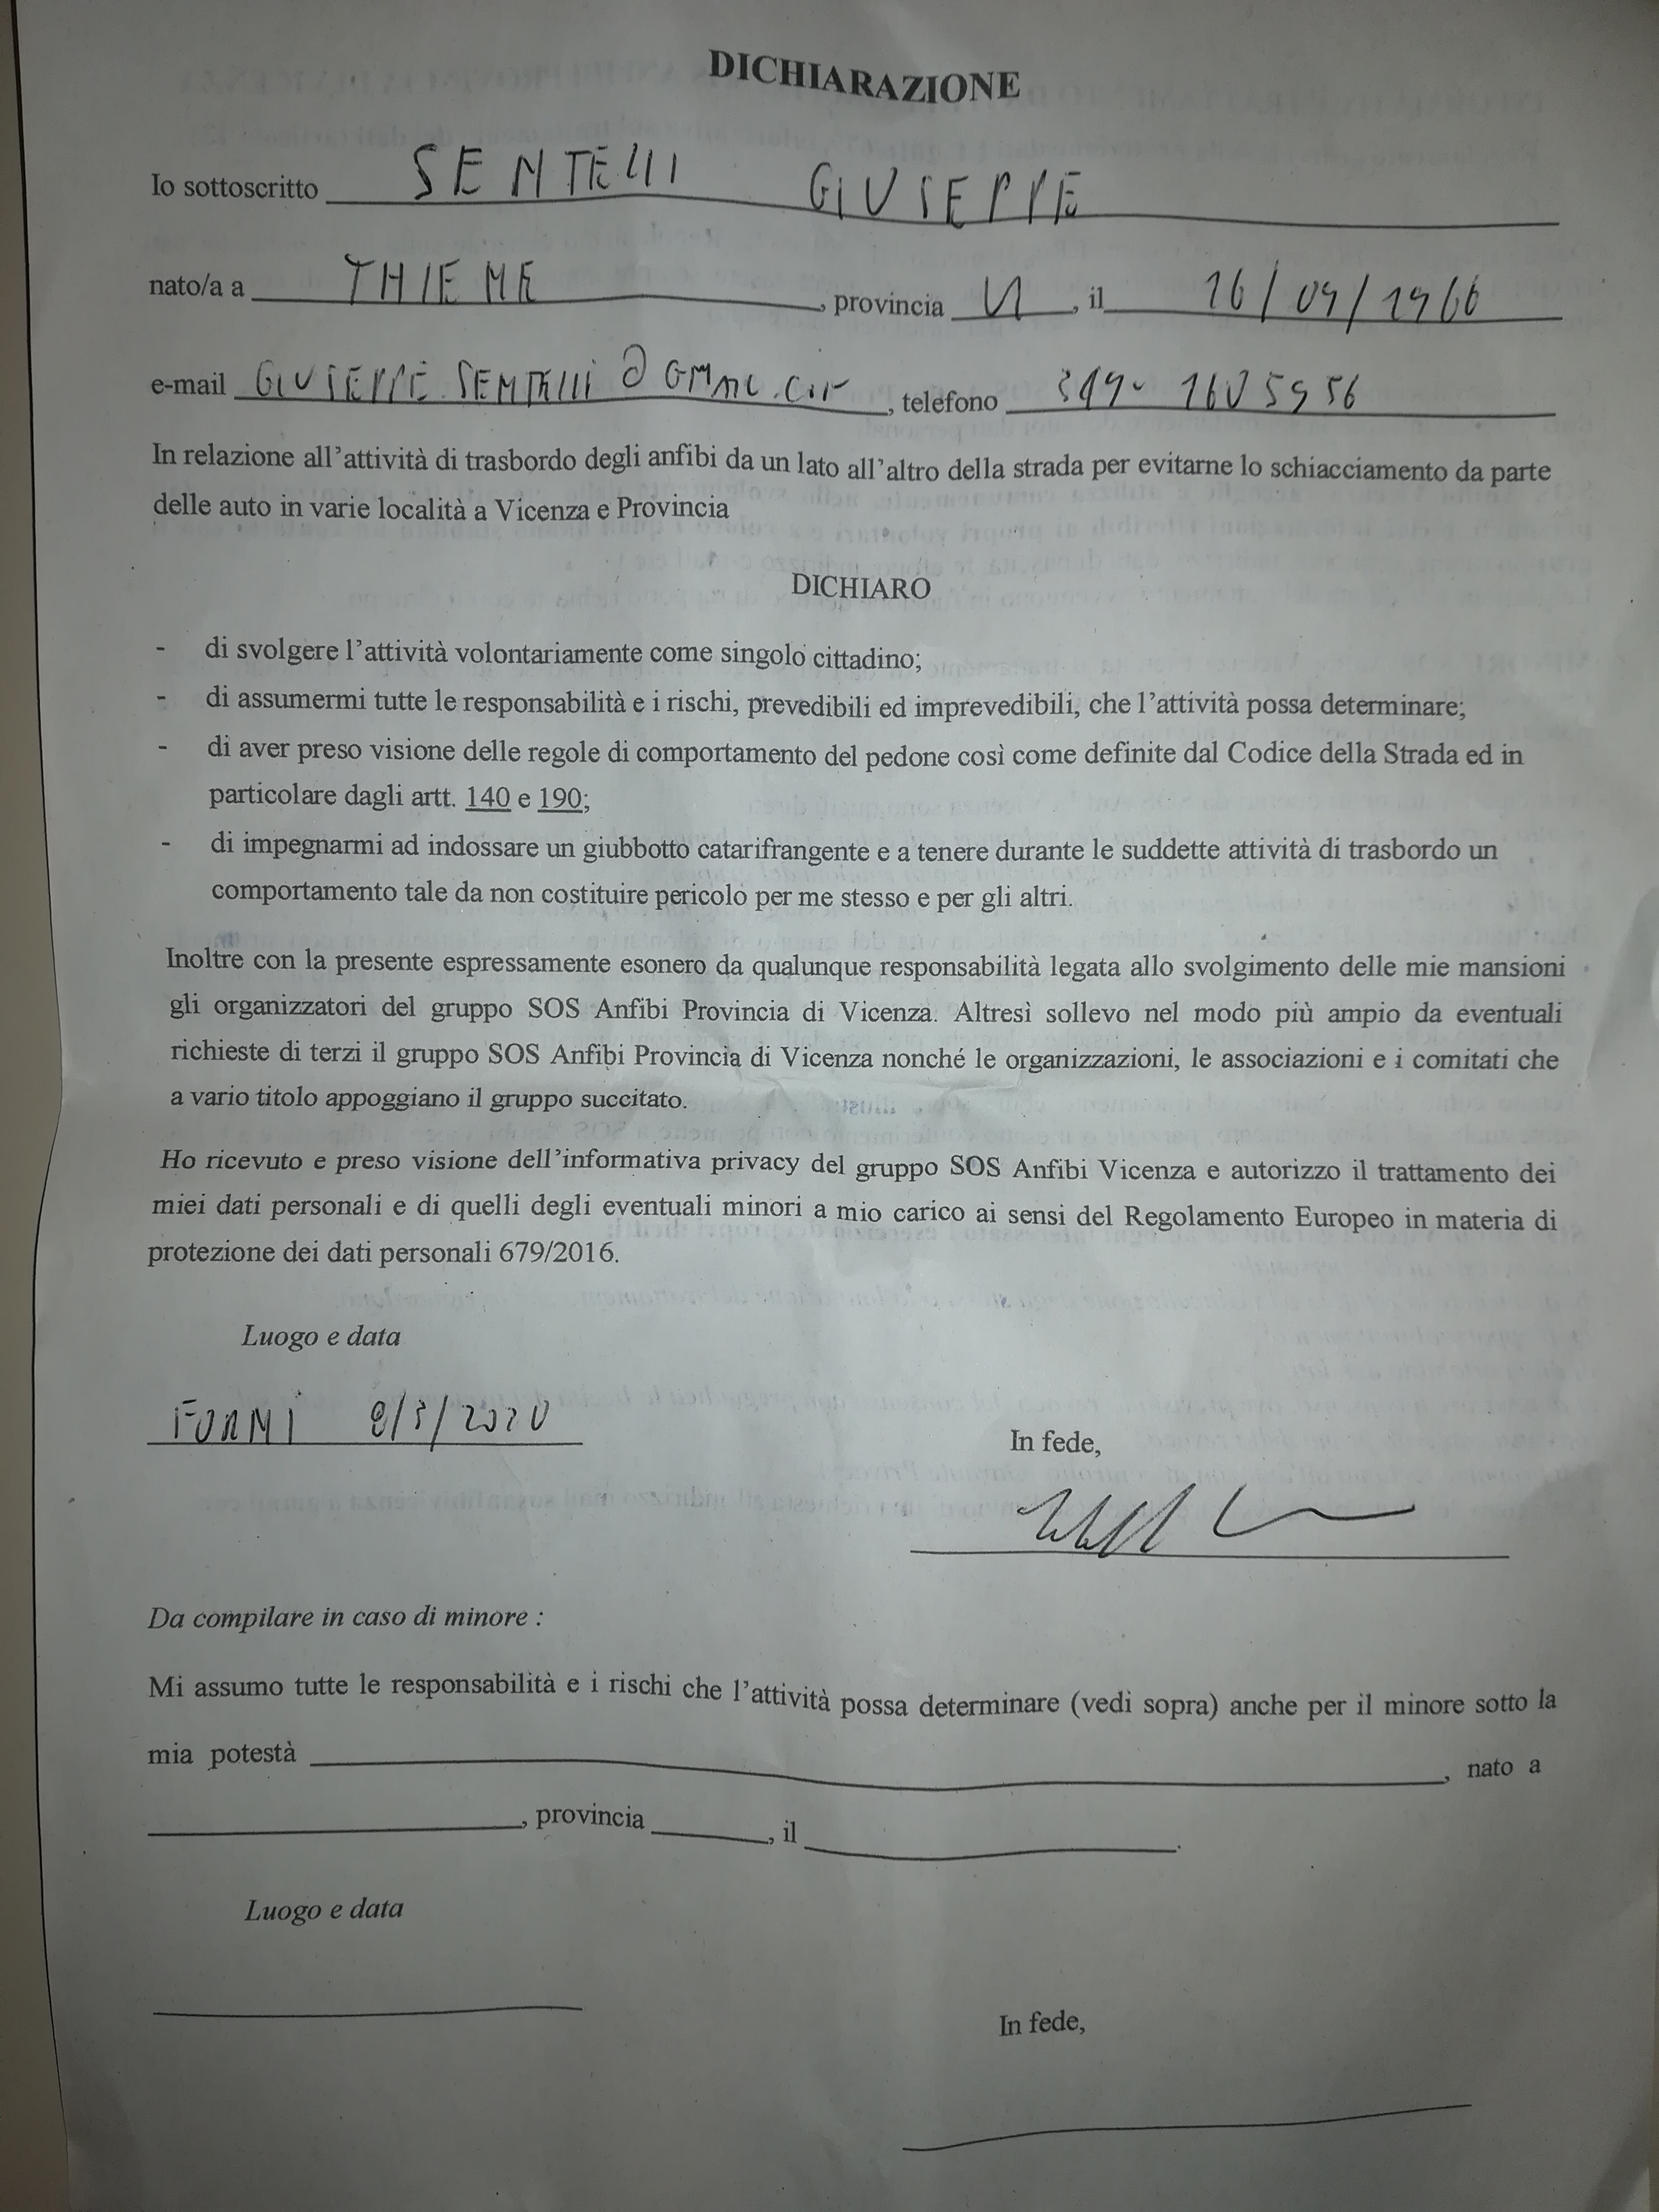 DICHIARAZIONE
Io sottoscritto SENTELLI GIUSEPPE
nato/a a THIENE, provincia VI, il 16/04/1966
e-mail GIUSEPPE.SENTELLI@GMAIL.COM, telefono
In relazione all'attività di trasbordo degli anfibi da un lato all'altro della strada per evitarne lo schiacciamento da parte
delle auto in varie località a Vicenza e Provincia
DICHIARO
- di svolgere l'attività volontariamente come singolo cittadino;
- di assumermi tutte le responsabilità e i rischi, prevedibili ed imprevedibili, che l'attività possa determinare;
- di aver preso visione delle regole di comportamento del pedone così come definite dal Codice della Strada ed in
particolare dagli artt. 140 e 190;
- di impegnarmi ad indossare un giubbotto catarifrangente e a tenere durante le suddette attività di trasbordo un
comportamento tale da non costituire pericolo per me stesso e per gli altri.
Inoltre con la presente espressamente esonero da qualunque responsabilità legata allo svolgimento delle mie mansioni
gli organizzatori del gruppo SOS Anfibi Provincia di Vicenza. Altresì sollevo nel modo più ampio da eventuali
richieste di terzi il gruppo SOS Anfibi Provincia di Vicenza nonché le organizzazioni, le associazioni e i comitati che
a vario titolo appoggiano il gruppo succitato.
Ho ricevuto e preso visione dell'informativa privacy del gruppo SOS Anfibi Vicenza e autorizzo il trattamento dei
miei dati personali e di quelli degli eventuali minori a mio carico ai sensi del Regolamento Europeo in materia di
protezione dei dati personali 679/2016.
Luogo e data
8/3/2020
In fede,
Da compilare in caso di minore :
Mi assumo tutte le responsabilità e i rischi che l'attività possa determinare (vedi sopra) anche per il minore sotto la
mia potestà , nato a
, provincia , il .
Luogo e data
In fede,